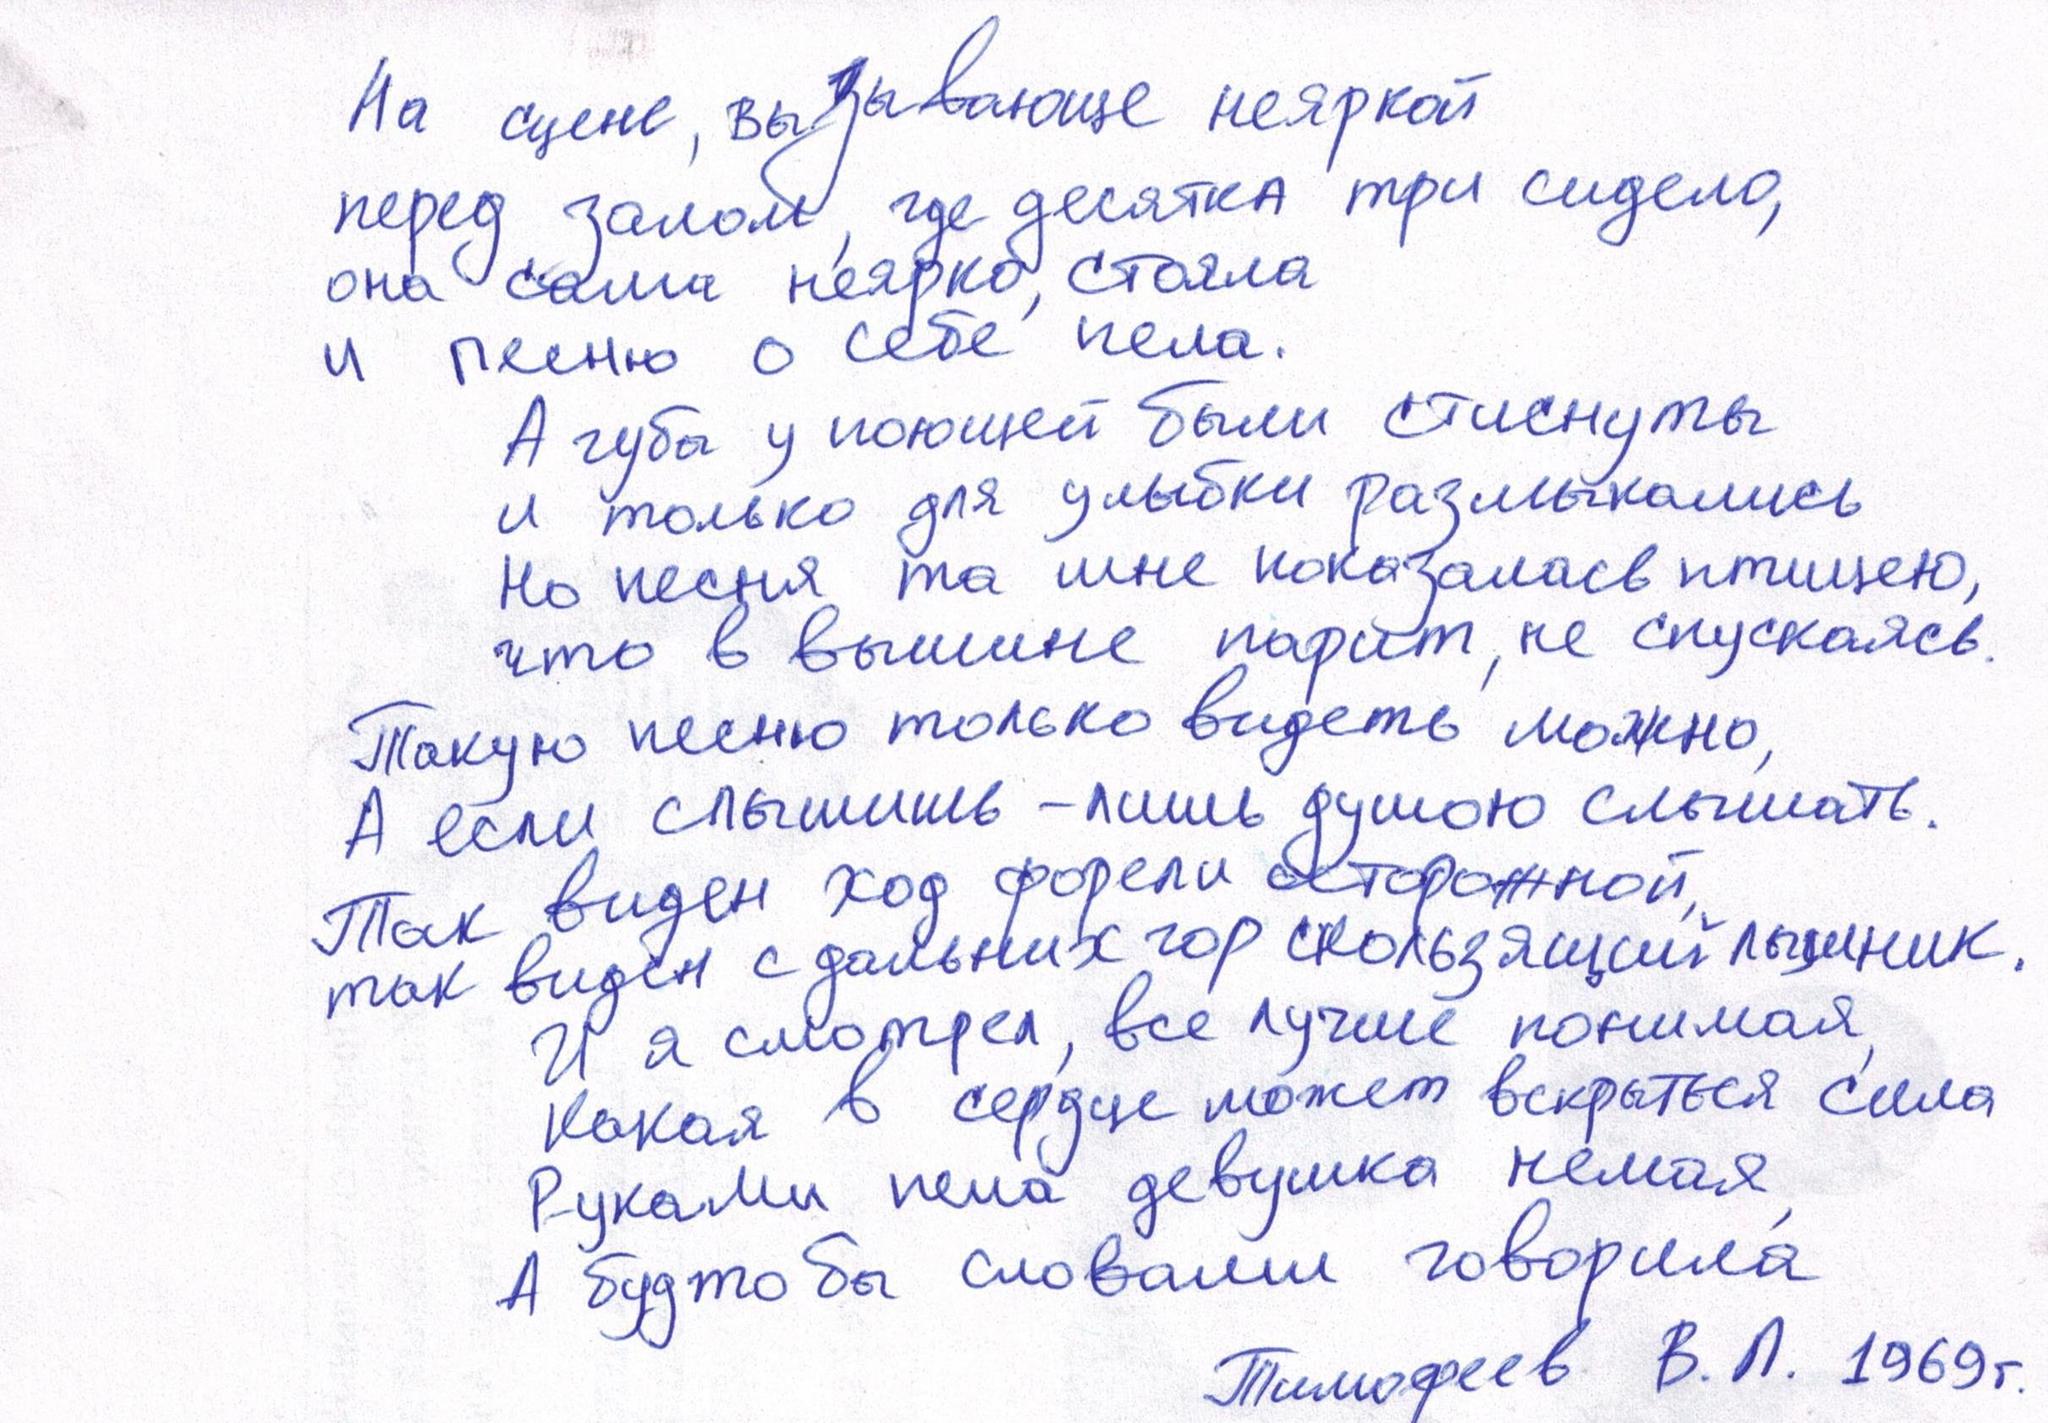 На сцене, вызывающе неяркой
перед залом, где десятка три сидело,
она сама неярко, стояла
и песню о себе пела.
А губы у поющей были стиснуты
и только для улыбки размыкались
Но песня та мне показалась птицею,
что в вышине парит, не спускаясь.
Такую песню только видеть можно,
А если слышишь - лишь душою слышать.
Так виден ход форели осторожной,
так виден с дальних гор скользящий лыжник.
И я смотрел, все лучше понимая,
Какая в сердце может вскрыться сила
Руками пела девушка немая,
А будто бы словами говорила
Тимофеев В.Л. 1969г.